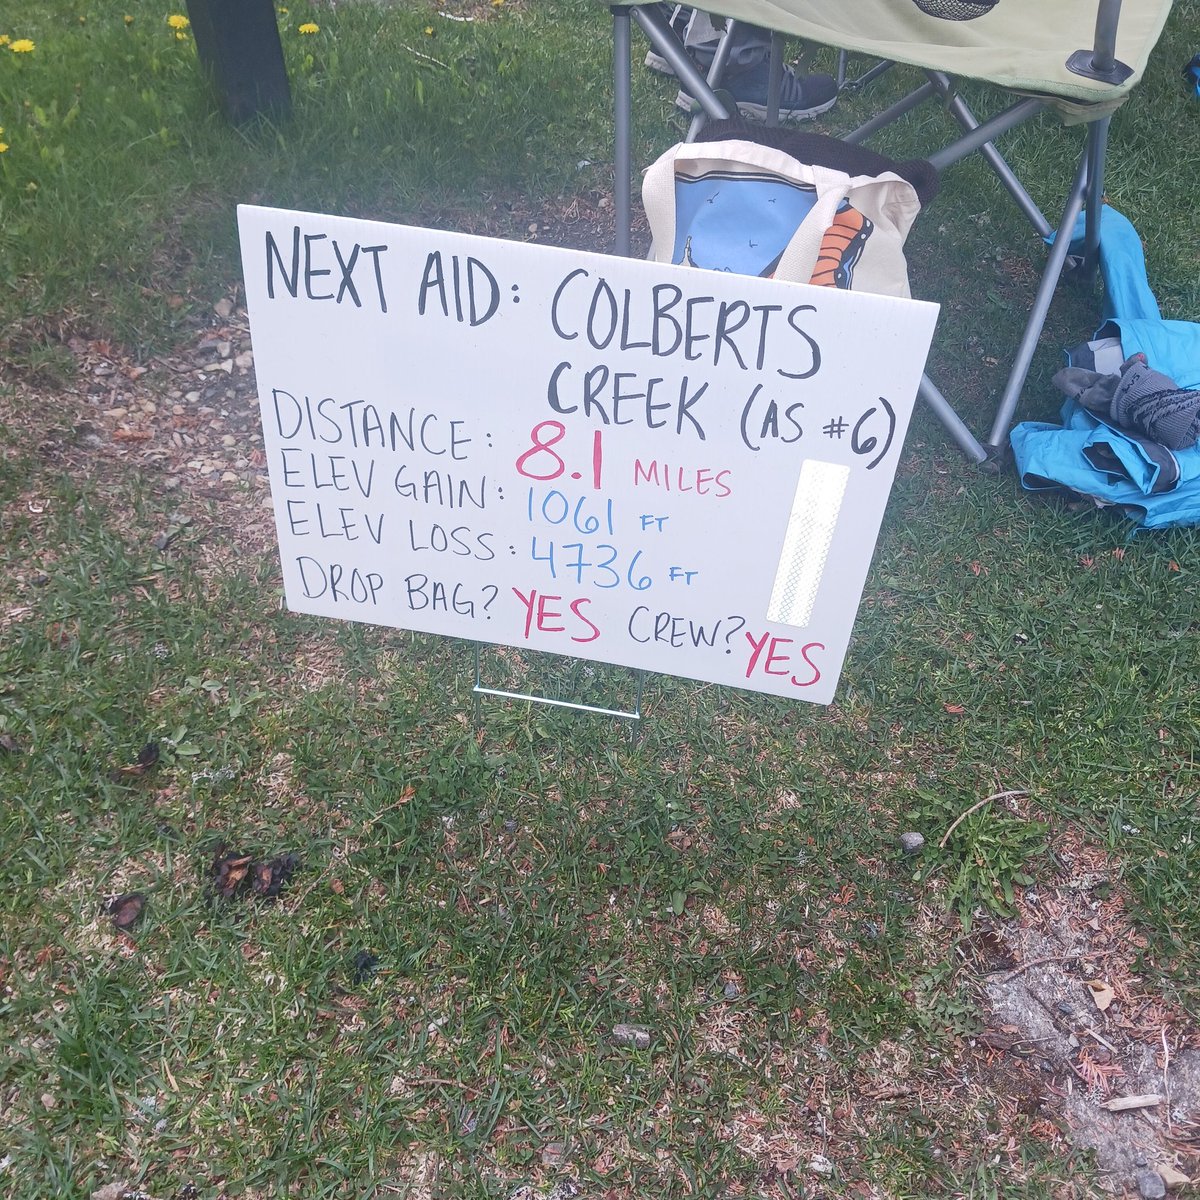 NEXT AID: COLBERTS
CREEK (AS #6)
DISTANCE: 8.1 MILES
ELEV GAIN: 1061 FT
ELEV LOSS: 4736 FT
DROP BAG? YES CREW? YES